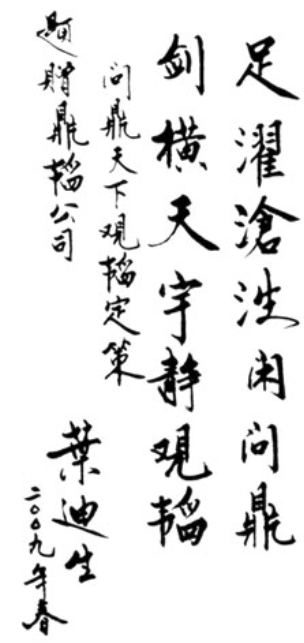 足濯滄浪闲问鼎
剑横天宇静观韬
问鼎天下观韬定策
题赠鼎韬公司
葉迪生
二〇〇九年春